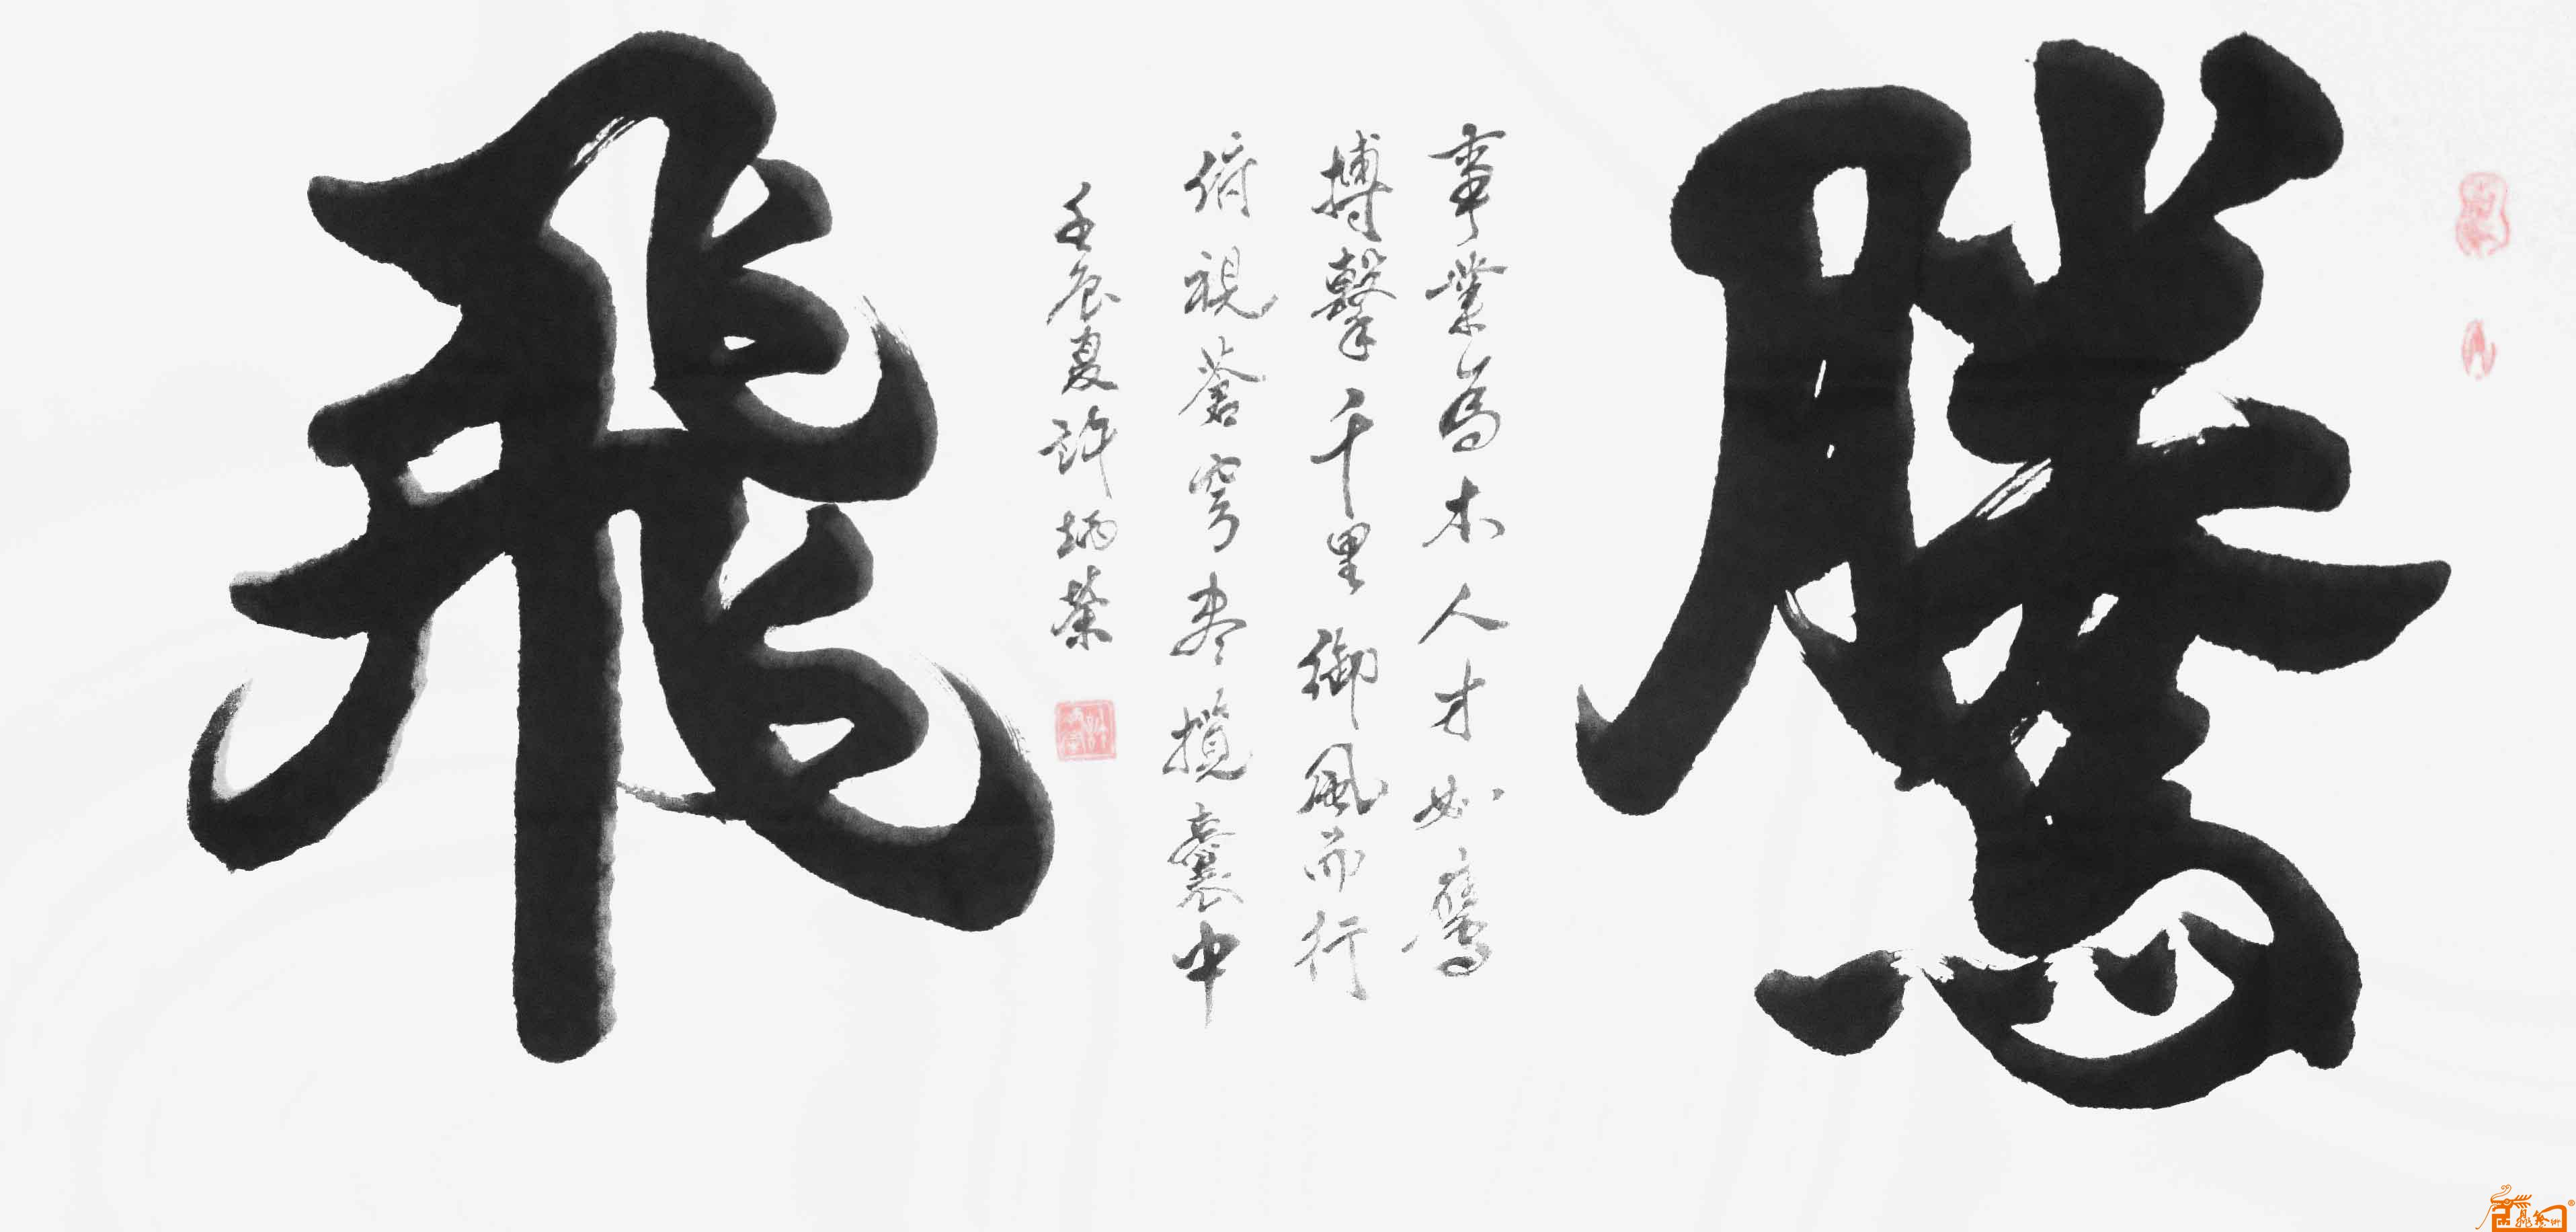 騰
事業為木人才如鷹
搏擊千里御風而行
俯視蒼穹盡攬囊中
壬辰夏許炳榮
飛